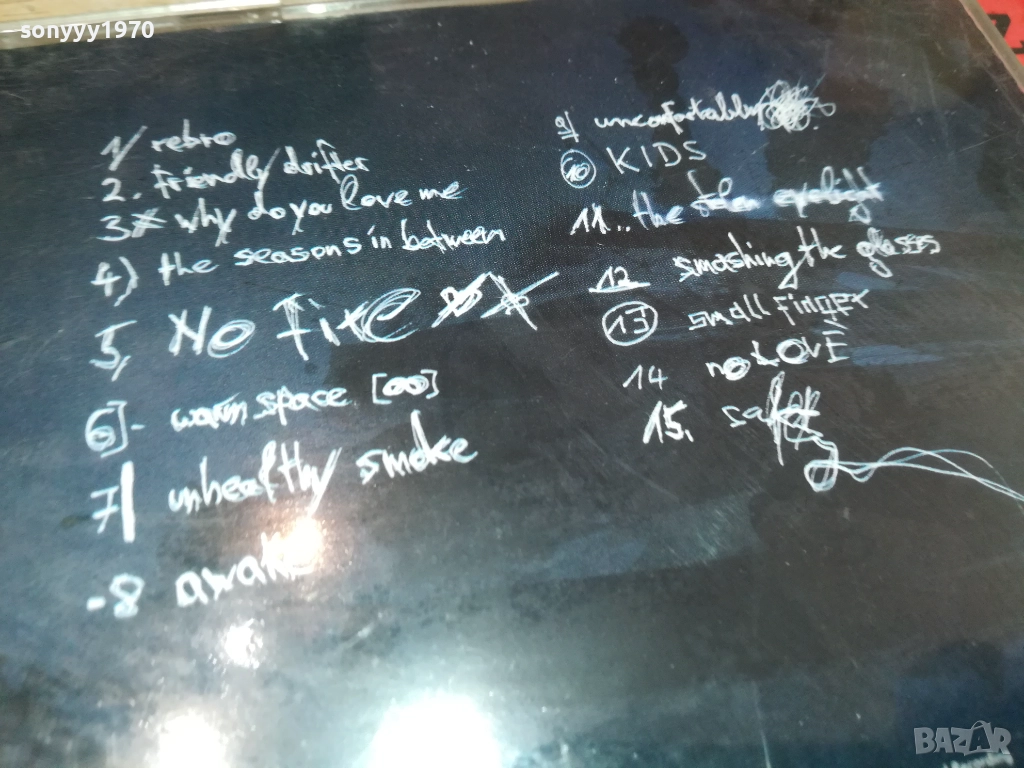 sonyyy1970
1/ retro
2. friendly drifter
3 why do you love me
4) the seasons in between
5, No Fire
6]- warm space [oo]
7| unhealthy smoke
-8 awake
9/ uncomfortably
10 KIDS
11.. the
12 smashing the glasses
13 small finger
14 no LOVE
15.
BAZAR